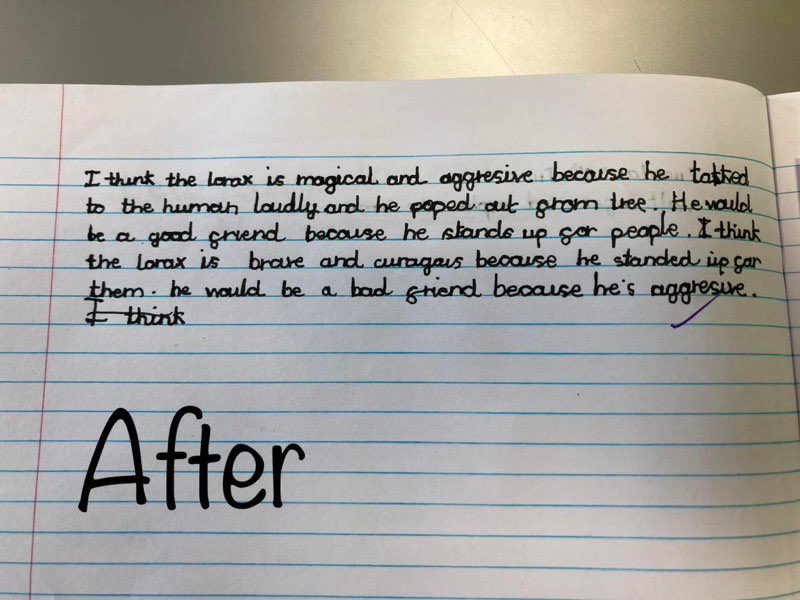 I think the lorax is magical and aggresive because he talked
to the human loudly and he poped out from tree. He would
be a good friend because he stands up for people. I think
the lorax is brave and curagaus because he standed up for
them. he would be a bad friend because he's aggresive.
I think
After